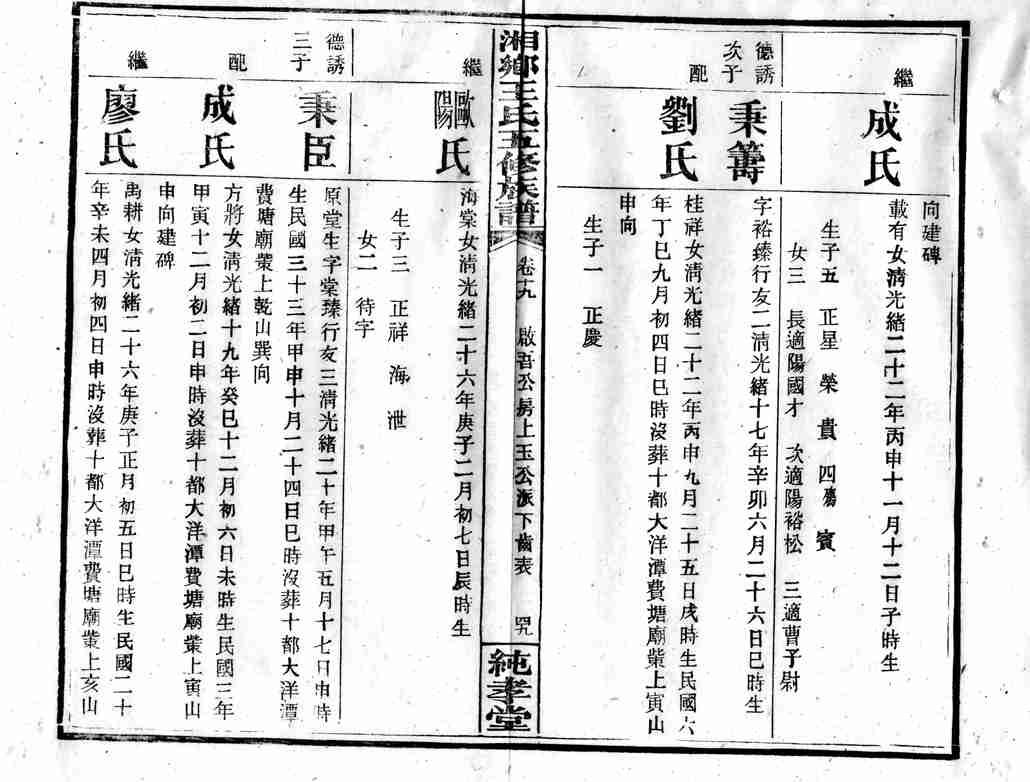 向建碑
繼
成氏
載有女清光緒二十二年丙申十一月十二日子時生
生子五 正星 榮 貴 四殤 賓
女三 長適陽國才 次適陽裕松 三適曹子尉
德誘
次子
秉籌
字裕臻行友二清光緒十七年辛卯六月二十六日巳時生
配
劉氏
桂祥女清光緒二十二年丙申九月二十五日戌時生民國六
年丁巳九月初四日巳時沒葬十都大洋潭費塘廟㭰上寅山
申向
生子一 正慶
湘鄉王氏五修族譜
卷十九
啟吾公房上玉公派下齒表
四九
純孝堂
繼
歐陽氏
海棠女清光緒二十六年庚子二月初七日辰時生
生子三 正祥 海 泄
女二 待字
德誘
三子
秉臣
原堂生字棠臻行友三清光緒二十年甲午五月十七日申時
生民國三十三年甲申十月二十四日巳時沒葬十都大洋潭
費塘廟㭰上乾山巽向
配
成氏
方將女清光緒十九年癸巳十二月初六日未時生民國三年
甲寅十二月初二日申時沒葬十都大洋潭費塘廟㭰上寅山
申向建碑
繼
廖氏
禹耕女清光緒二十六年庚子正月初五日巳時生民國二十
年辛未四月初四日申時沒葬十都大洋潭費塘廟㭰上亥山